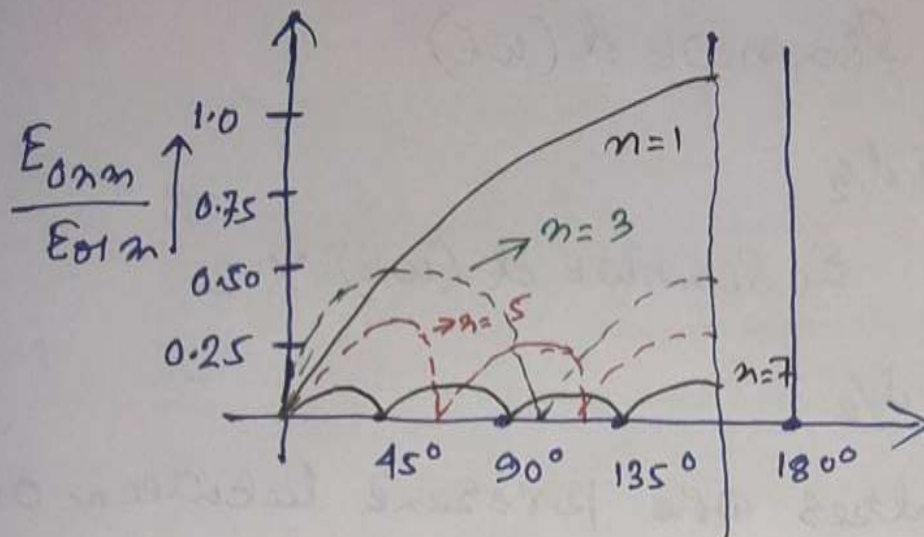 1.0
E0nm
E01m
0.75
0.50
0.25
n=1
n=3
n=5
n=7
45°
90°
135°
180°